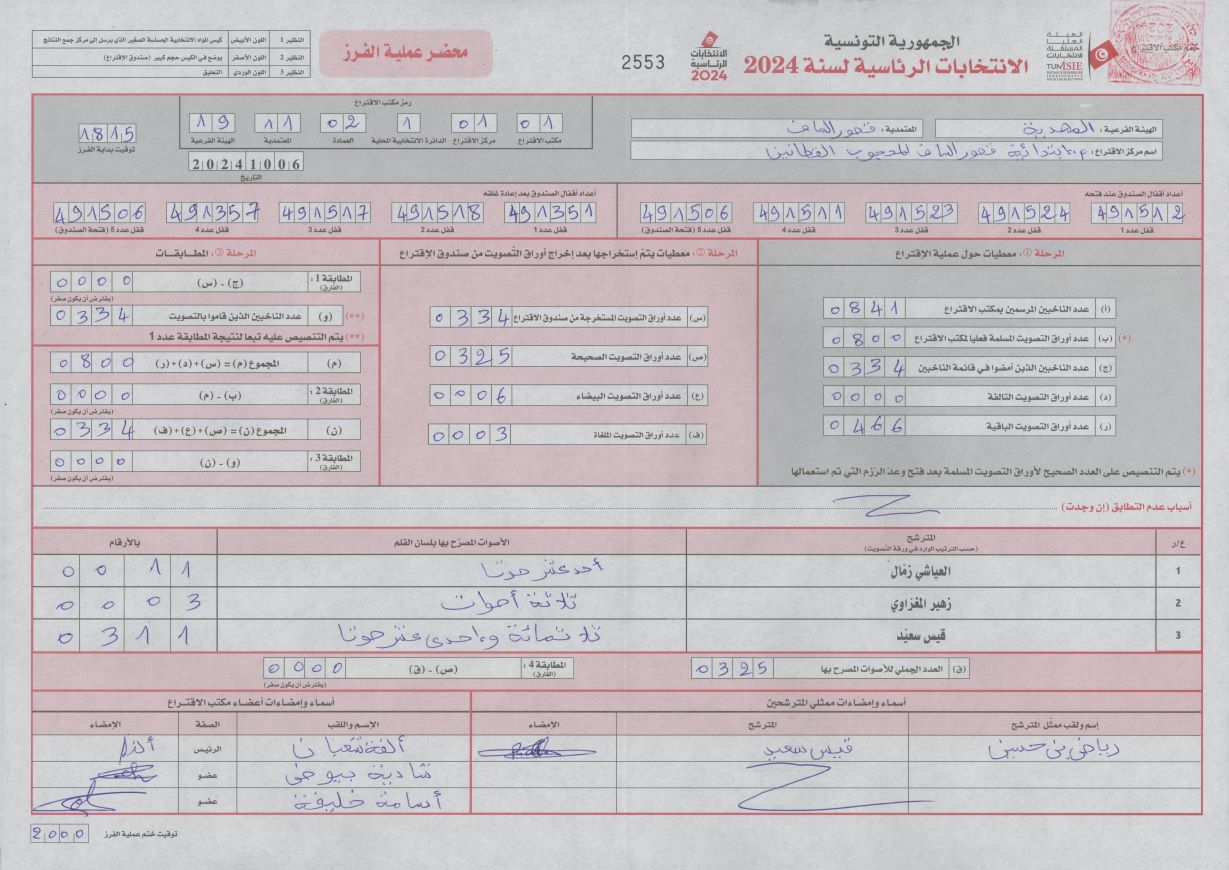 الجمهورية التونسية
الانتخابات الرئاسية لسنة 2024
الهيئة العليا المستقلة للانتخابات
TUNISIE
الانتخابات الرئاسية 2024
2553
محضر عملية الفرز
النظير 1 اللون الأبيض كيس المواد الانتخابية الحساسة الصغير الذي يرسل إلى مركز جمع النتائج
النظير 2 اللون الأصفر يوضع في الكيس حجم كبير (صندوق الإقتراع)
النظير 3 اللون الوردي التعليق
الهيئة الفرعية : المهدية المعتمدية : قصور الساف
اسم مركز الاقتراع : م. ابتدائية قصور الساف المحجوب القطانين
رمز مكتب الاقتراع
01 01 1 02 11 19
مكتب الاقتراع مركز الاقتراع الدائرة الانتخابية المحلية العمادة المعتمدية الهيئة الفرعية
20241006
التاريخ
1815
توقيت بداية الفرز
أعداد أقفال الصندوق عند فتحه
491512 491524 491523 491511 491506
قفل عدد 1 قفل عدد 2 قفل عدد 3 قفل عدد 4 قفل عدد 5 (فتحة الصندوق)
أعداد أقفال الصندوق بعد إعادة غلقه
491351 491518 491517 491357 491506
قفل عدد 1 قفل عدد 2 قفل عدد 3 قفل عدد 4 قفل عدد 5 (فتحة الصندوق)
المرحلة ①: معطيات حول عملية الإقتراع
(أ) عدد الناخبين المرسمين بمكتب الاقتراع 0841
(*) (ب) عدد أوراق التصويت المسلمة فعليا لمكتب الاقتراع 0800
(ج) عدد الناخبين الذين أمضوا في قائمة الناخبين 0334
(د) عدد أوراق التصويت التالفة 0000
(ر) عدد أوراق التصويت الباقية 0466
(*) يتم التنصيص على العدد الصحيح لأوراق التصويت المسلمة بعد فتح وعد الرزم التي تم استعمالها
المرحلة ②: معطيات يتم إستخراجها بعد إخراج أوراق التصويت من صندوق الإقتراع
(س) عدد أوراق التصويت المستخرجة من صندوق الاقتراع 0334
(ص) عدد أوراق التصويت الصحيحة 0325
(ع) عدد أوراق التصويت البيضاء 0006
(ف) عدد أوراق التصويت الملغاة 0003
المرحلة ③: المطابقات
المطابقة 1 : (الفارق) (ج) - (س) 0000
(يفترض أن يكون صفر)
(**) (و) عدد الناخبين الذين قاموا بالتصويت 0334
(**) يتم التنصيص عليه تبعا لنتيجة المطابقة عدد 1
(م) المجموع (م) = (س) + (د) + (ر) 0800
المطابقة 2 : (الفارق) (ب) - (م) 0000
(يفترض أن يكون صفر)
(ن) المجموع (ن) = (ص) + (ع) + (ف) 0334
المطابقة 3 : (الفارق) (و) - (ن) 0000
(يفترض أن يكون صفر)
أسباب عدم التطابق (إن وجدت)
ع/ر المترشح (حسب الترتيب الوارد في ورقة التصويت) الأصوات المصرح بها بلسان القلم بالأرقام
1 العياشي زمال أحد عشر صوتا 0011
2 زهير المغزاوي ثلاثة أصوات 0003
3 قيس سعيد ثلاثمائة وإحدى عشر صوتا 0311
(ق) العدد الجملي للأصوات المصرح بها 0325
المطابقة 4 : (الفارق) (ص) - (ق) 0000
(يفترض أن يكون صفر)
أسماء وإمضاءات ممثلي المترشحين
إسم ولقب ممثل المترشح المترشح الإمضاء
رياض بن حسين قيس سعيد
أسماء وإمضاءات أعضاء مكتب الاقتراع
الإسم واللقب الصفة الإمضاء
ألفة شعبان الرئيس
شادية بيوض عضو
أسامة خليفة عضو
توقيت ختم عملية الفرز 2000